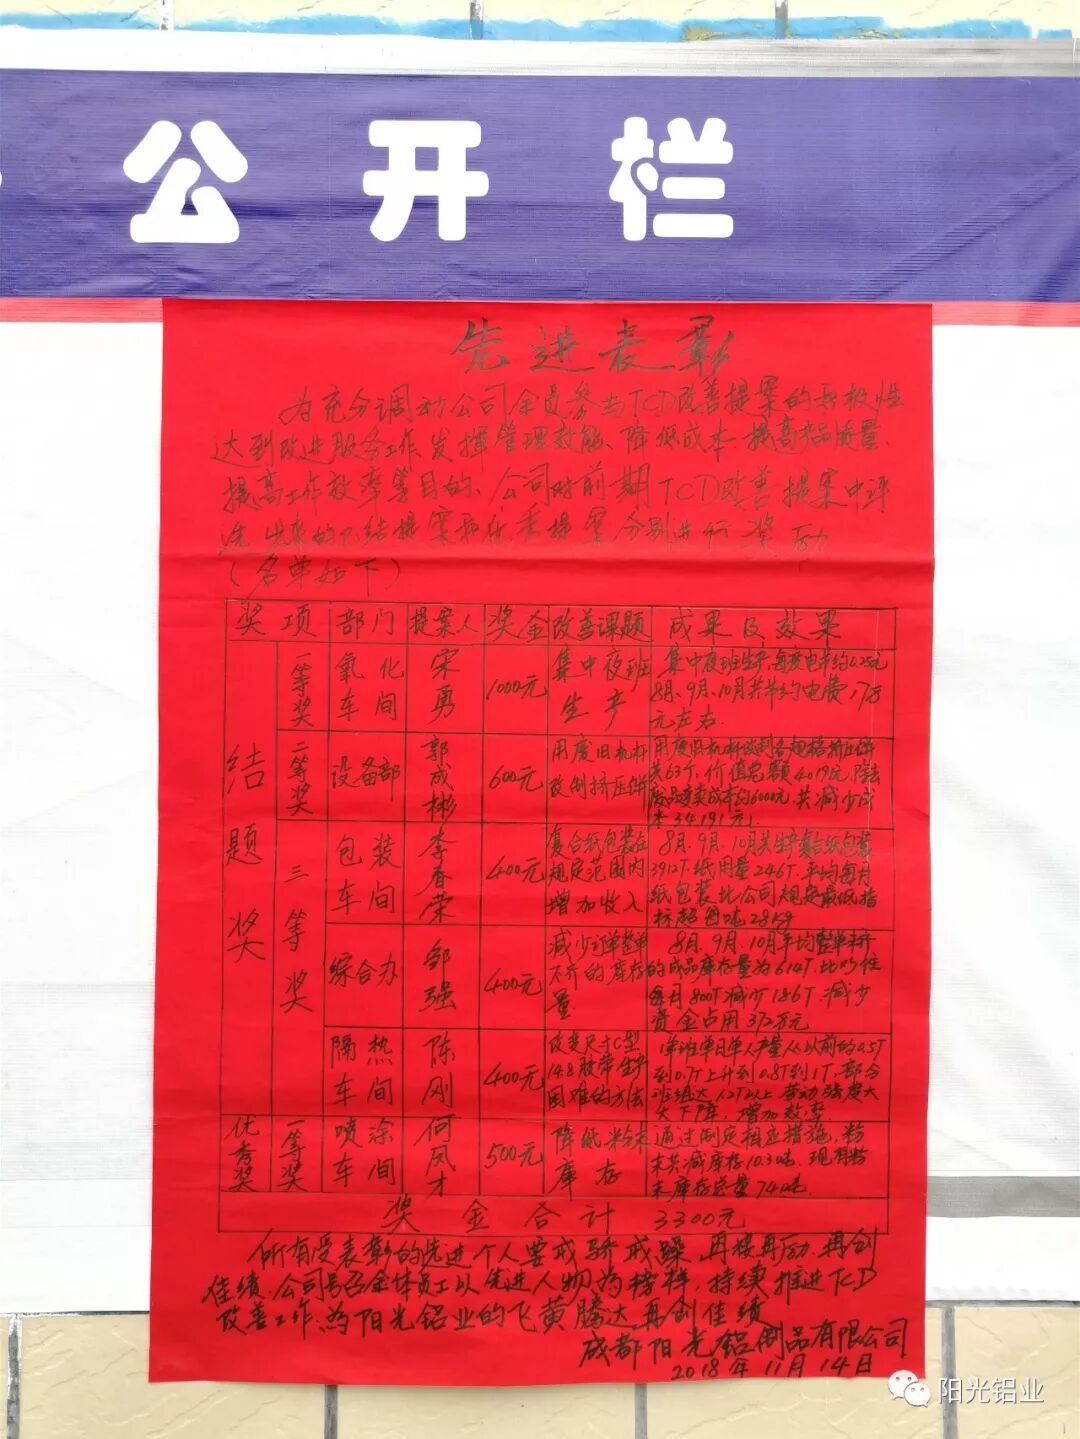 公开栏
先进表彰
为充分调动公司全员参与TCD改善提案的积极性
达到改进服务工作发挥管理效能、降低成本、提高产品质量、
提高工作效率等目的、公司对前期TCD改善提案中评
选出来的已结提案和优秀提案分别进行奖励
(名单如下)
奖项 部门 提案人 奖金 改善课题 成果及效果
结题奖
一等奖 氧化车间 宋勇 1000元
集中夜班
生产
集中夜班生产,每度电节约0.25元
8月、9月、10月共节约电费17万
元左右.
二等奖 设备部 郭成彬 600元
用废旧机杆
改制挤压饼
用废旧机杆改制各规格挤压饼
共63个,价值总额
成本约6000元.共减少成
本34191元.
三等奖
包装车间 李春荣 400元
复合纸包装在
规定范围内
增加收入
8月、9月、10月共生产复合纸包装
3912T.纸用量246T.平均每月
纸包装比公司规定最低指
标超每吨28Kg
综合办 邹强 400元
减少订单整单
不齐的库存
量
8月、9月、10月平均整单不齐
的成品库存量为614T.比以往
每月800T减少186T.减少
资金占用372万元
隔热车间 陈刚 400元
改变尺寸C型
14.8胶带生产
困难的方法
单班单日单人产量从以前的0.5T
到0.7T上升到0.8T到1T,部分
班组达1.2T以上劳动强度大
大下降,增加效率
优秀奖 一等奖 喷涂车间 何凤才 500元
降低粉末
库存
通过制定相应措施,粉
末共减库存10.3吨.现有粉
末库存总量74吨.
奖金合计 3300元
所有受表彰的先进个人要戒骄戒躁、再接再励、再创
佳绩.公司号召全体员工以先进人物为榜样,持续推进TCD
改善工作、为阳光铝业的飞黄腾达再创佳绩
成都阳光铝制品有限公司
2018年11月14日
阳光铝业